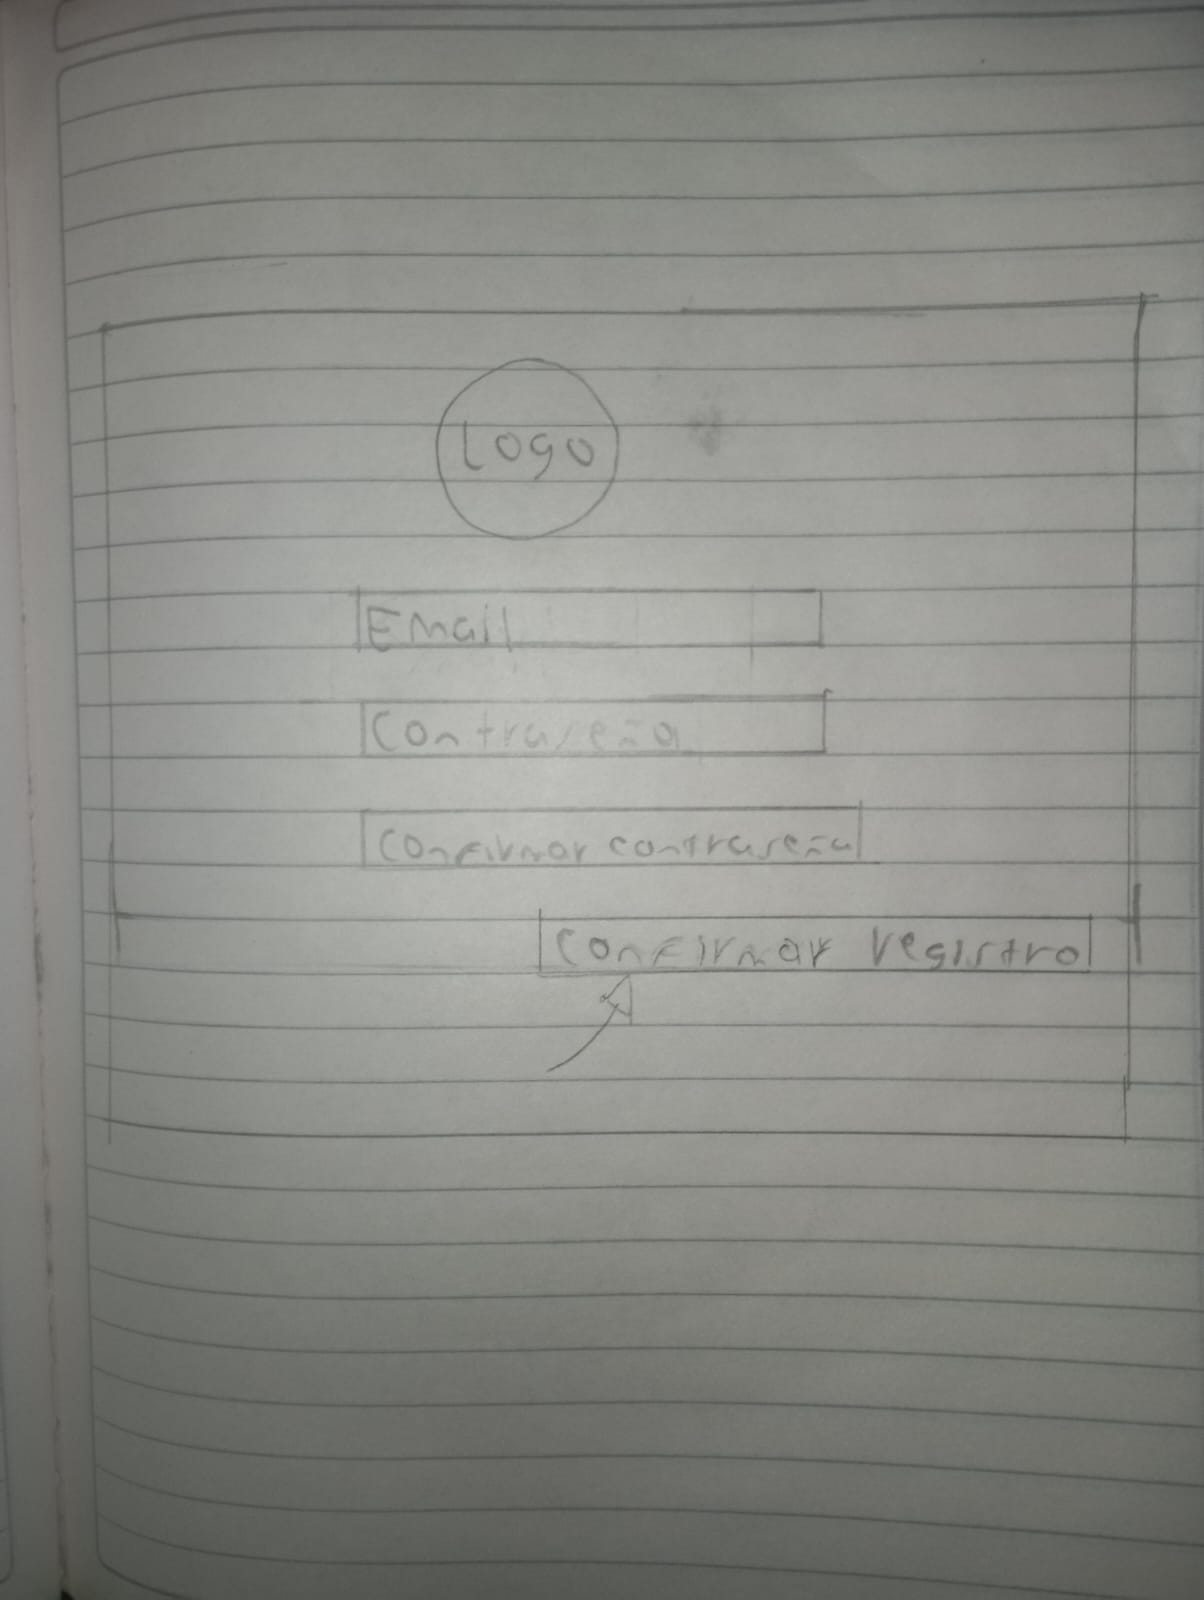 Logo
Email
Contraseña
Confirmar contraseña
Confirmar registro